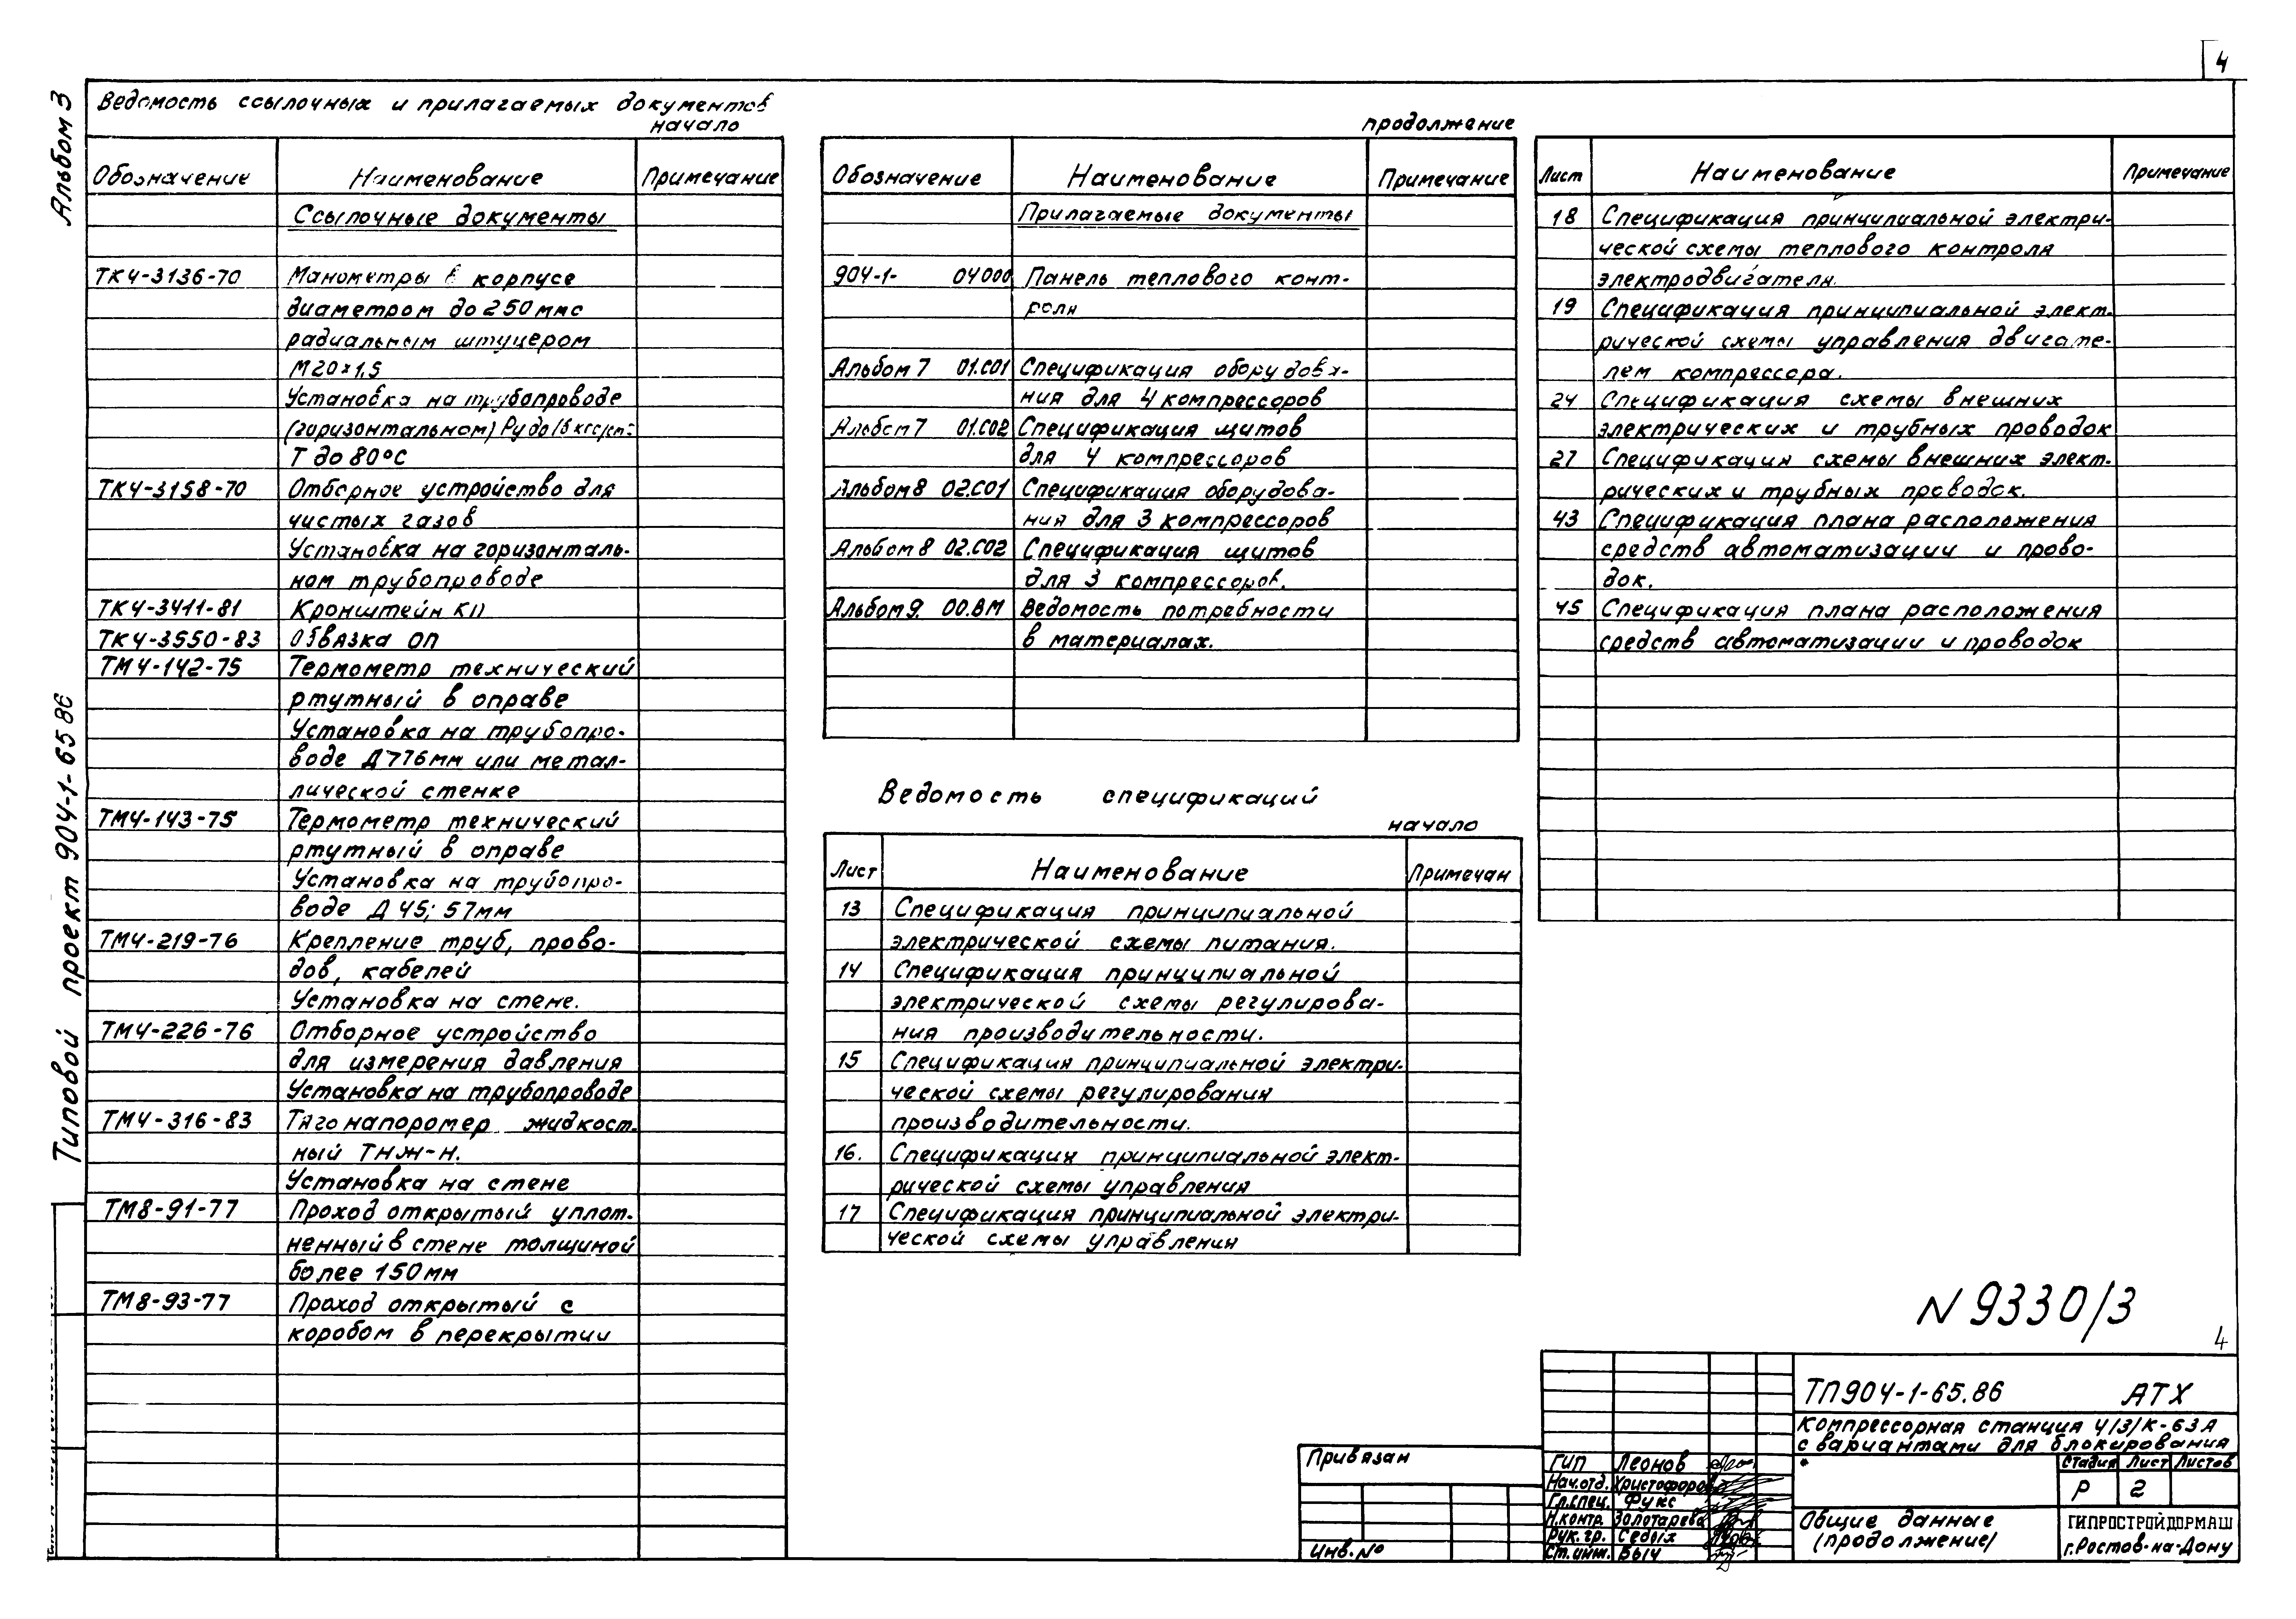 4
Альбом 3
Типовой проект 904-1-65 86
Ведомость ссылочных и прилагаемых документов
начало
Обозначение Наименование Примечание
Ссылочные документы
ТК4-3136-70 Манометры в корпусе
диаметром до 250 мм с
радиальным штуцером
М20×1,5
Установка на трубопроводе
(горизонтальном) Ру до 16 кгс/см²
Т до 80°С
ТК4-3158-70 Отборное устройство для
чистых газов
Установка на горизонталь-
ном трубопроводе
ТК4-3411-81 Кронштейн КП
ТК4-3550-83 Обвязка ОП
ТМ4-142-75 Термометр технический
ртутный в оправе
Установка на трубопро-
воде Д>76мм или метал-
лической стенке
ТМ4-143-75 Термометр технический
ртутный в оправе
Установка на трубопро-
воде Д 45; 57мм
ТМ4-219-76 Крепление труб, прово-
дов, кабелей
Установка на стене.
ТМ4-226-76 Отборное устройство
для измерения давления
Установка на трубопроводе
ТМ4-316-83 Тягонапоромер жидкост-
ный ТНЖ-Н.
Установка на стене
ТМ8-91-77 Проход открытый уплот-
ненный в стене толщиной
более 150мм
ТМ8-93-77 Проход открытый с
коробом в перекрытии
продолжение
Обозначение Наименование Примечание
Прилагаемые документы
904-1- 04000 Панель теплового конт-
роля
Альбом 7 01.С01 Спецификация оборудова-
ния для 4 компрессоров
Альбом 7 01.С02 Спецификация щитов
для 4 компрессоров
Альбом 8 02.С01 Спецификация оборудова-
ния для 3 компрессоров
Альбом 8 02.С02 Спецификация щитов
для 3 компрессоров.
Альбом 9. 00.ВМ Ведомость потребности
в материалах.
Ведомость спецификаций
начало
Лист Наименование Примечан
13 Спецификация принципиальной
электрической схемы питания.
14 Спецификация принципиальной
электрической схемы регулирова-
ния производительности.
15 Спецификация принципиальной электри-
ческой схемы регулирования
производительности.
16. Спецификация принципиальной элект-
рической схемы управления
17 Спецификация принципиальной электри-
ческой схемы управления
Лист Наименование Примечание
18 Спецификация принципиальной электри-
ческой схемы теплового контроля
электродвигателя.
19 Спецификация принципиальной элект-
рической схемы управления двигате-
лем компрессора.
24 Спецификация схемы внешних
электрических и трубных проводок
27 Спецификация схемы внешних элект-
рических и трубных проводок.
43 Спецификация плана расположения
средств автоматизации и прово-
док.
45 Спецификация плана расположения
средств автоматизации и проводок
N 9330/3
4
ТП904-1-65.86 АТХ
Компрессорная станция 4/3/К-63А
с вариантами для блокирования
Стадия Лист Листов
Р 2
Общие данные
(продолжение)
ГИПРОСТРОЙДОРМАШ
г.Ростов-на-Дону
Привязан
Инв.№
ГИП Леонов
Нач.отд. Христофоров
Гл.спец. Фукс
Н.контр. Золотарева
Рук.гр. Седых
Ст.инж. Быч